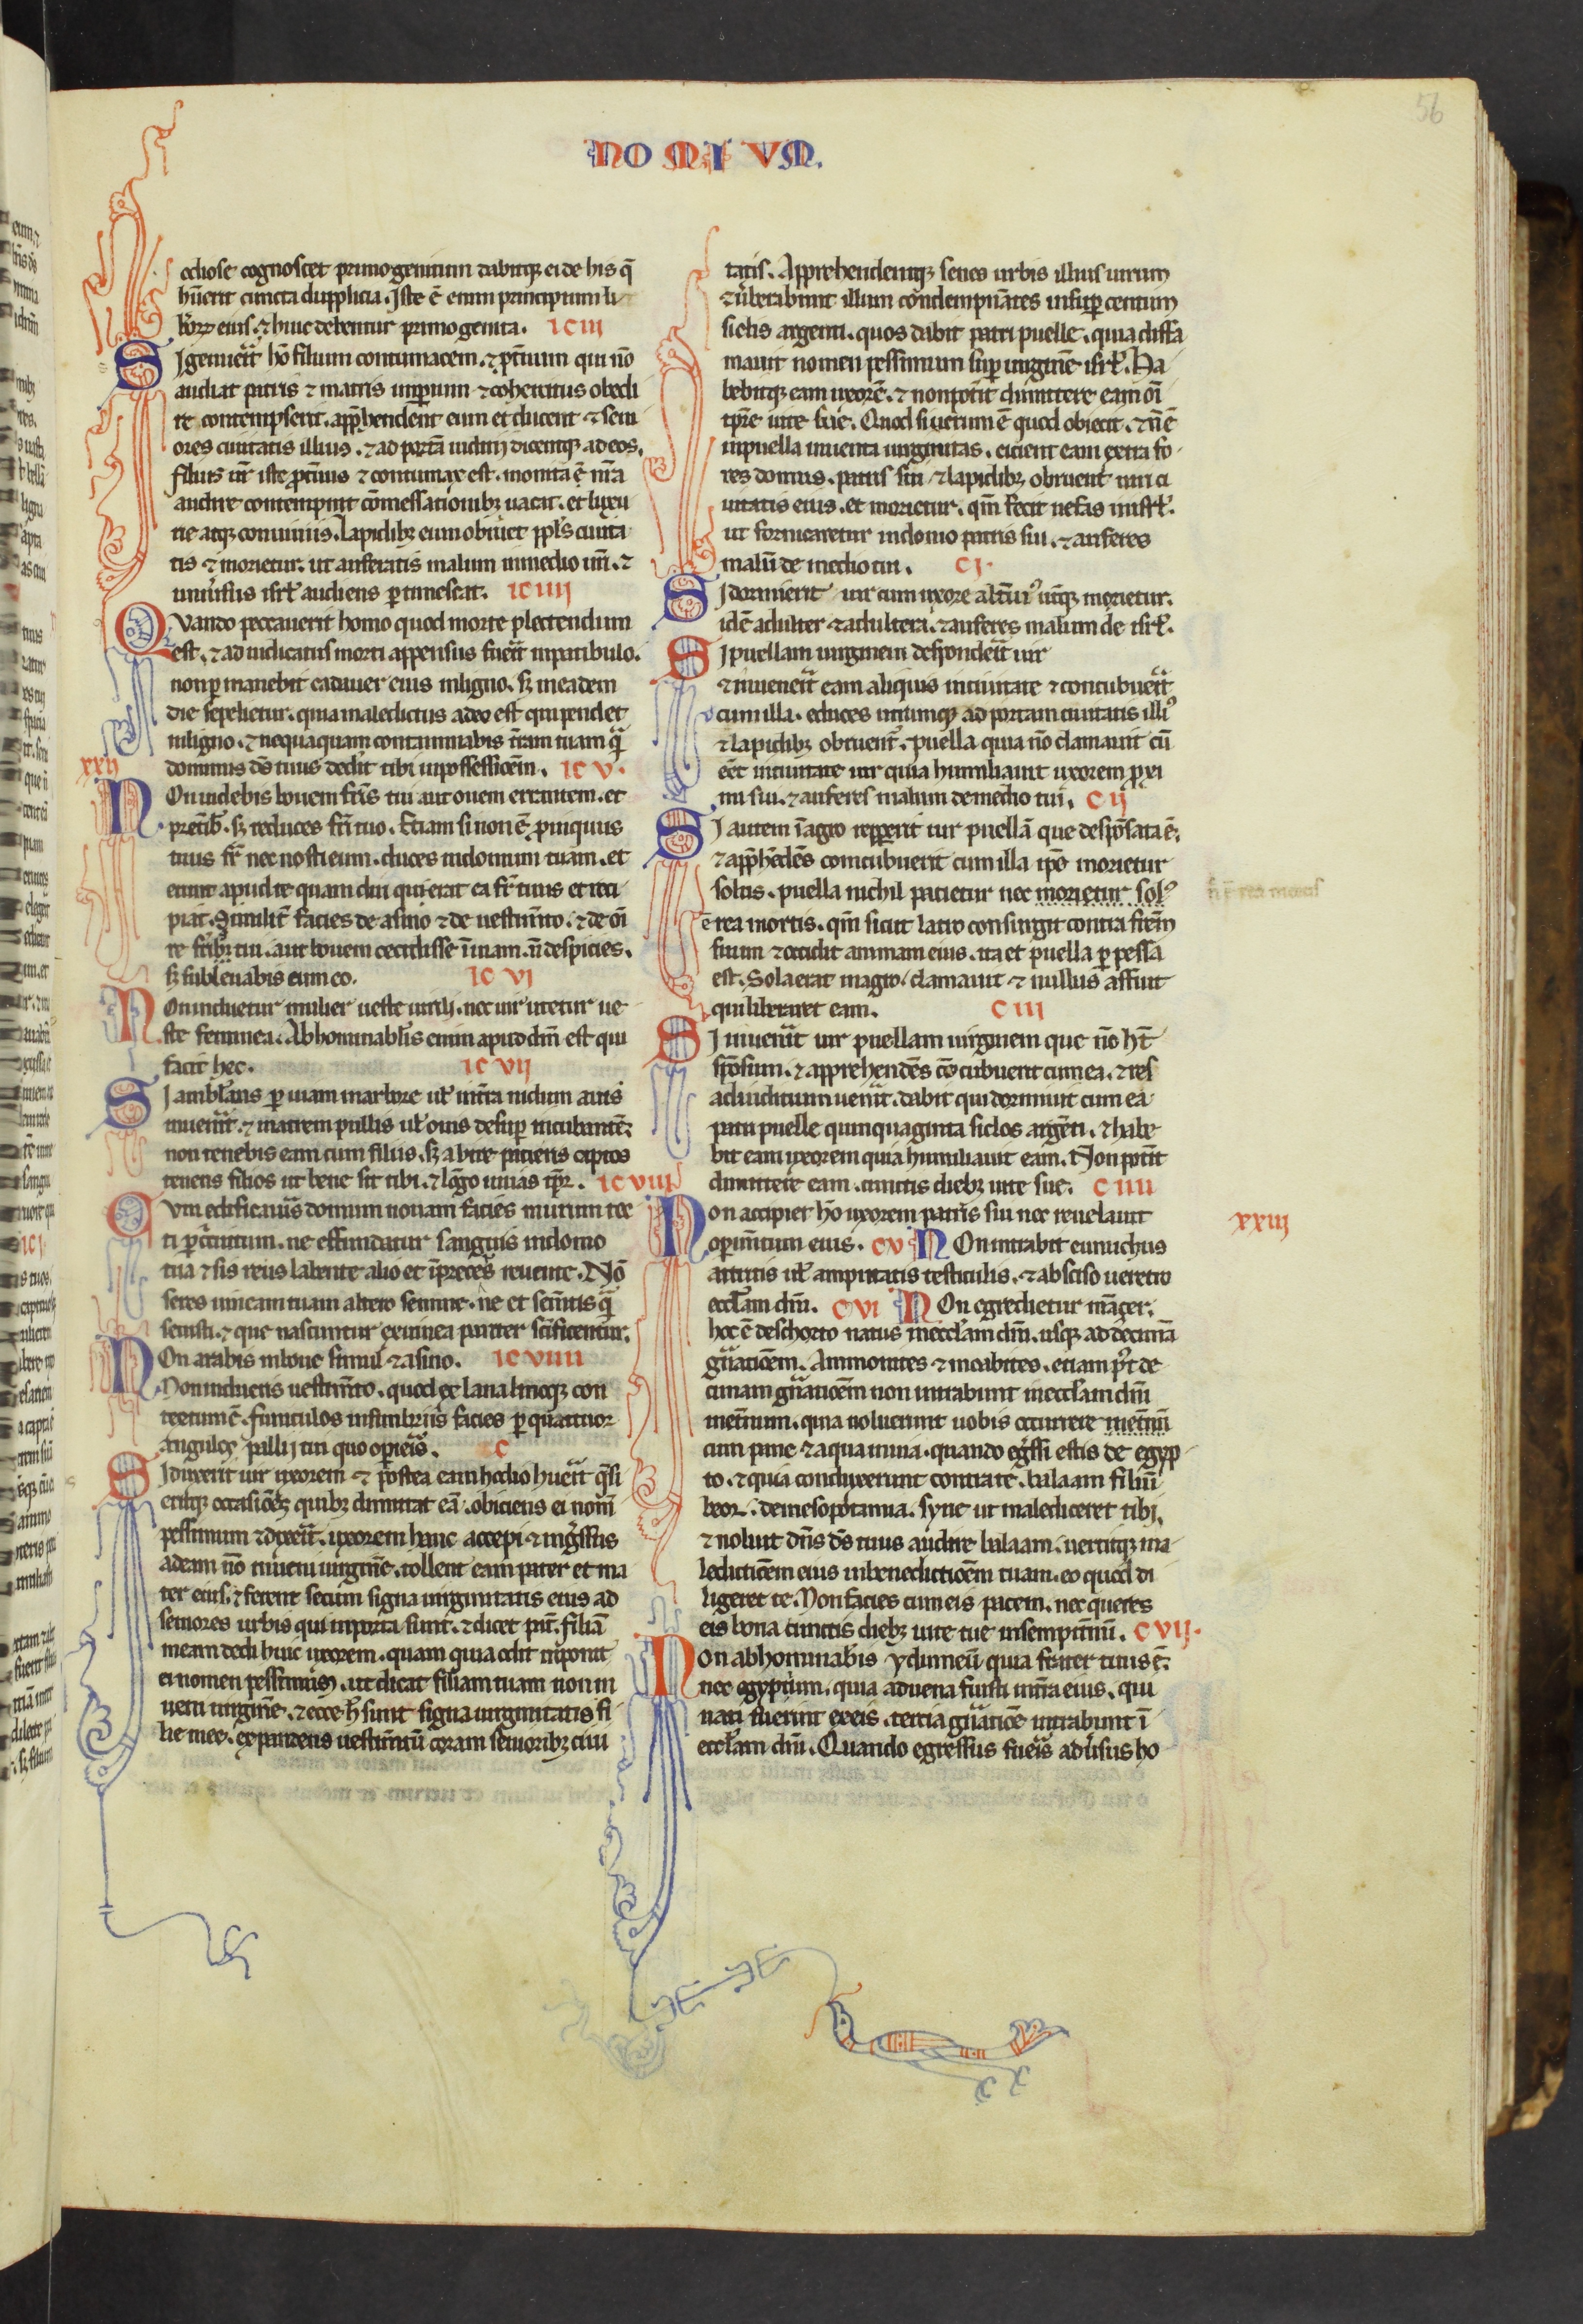 56
NOMIVM.
odiose cognoscet primogenitum dabitqꝫ ei de his q̄
hūerit cuncta dupplicia. Iste ē enim principium li
bōꝝ eius. ⁊ huic debentur primogenita. IC III
SI genuerit hō filium contumacem. ⁊ ꝓtuum qui nō
audiat patris ⁊ matris imperium ⁊ cohercitus obedi
re contempserit. apphendent eum et ducent ⁊ seni
ores ciuitatis illius. ⁊ ad portā iudicij dicentqꝫ ad eos.
filius nr̄ iste ꝓtuus ⁊ contumax est. monita ē nr̄a
audire contempnit cōmessationibꝫ uacat. et luxu
rie atqꝫ conuiuiis. Lapidibꝫ eum obruet ppl's ciuita
tis ⁊ morietur. ut auferatis malum inmedio uri. ⁊
uniuersus isrl' audiens ꝑtimescat. IC IIII
QVando peccauerit homo quod morte plectendum
est. ⁊ adiudicatus morti appensus fuerit inpatibulo.
non ꝑmanebit cadauer eius inligno. sꝫ ineadem
die sepelietur. quia maledictus adeo est qui pendet
inligno. ⁊ nequaquam contaminabis terram tuam q̄
dominus dš tuus dedit tibi inpossessioem. IC V.
XXII
NOn uidebis bouem fr̄is tui aut ouem errantem. et
preterib'. sꝫ reduces fr̄i tuo. Etiam si non ē ꝓpinquus
tuus fr̄ nec nosti eum. duces indomum tuam. et
erunt apud te quam diu querat ea fr̄ tuus et reci
piat. Similit' facies de asino ⁊ de uestim̄to. ⁊ de oi
re fr̄is tui. aut bouem cecidisse ī uiam. n̄ despicies.
sꝫ subleuabis eum eo. IC VI
NOn induetur mulier ueste uirili. nec uir utetur ue
ste feminea. Abhominabil's enim apud dm̄ est qui
facit hec. IC VII
SI ambul'ans ꝑ uiam in arbore ul' in terra nidum auis
inuenerit. ⁊ matrem pullis ul' ouis desuꝑ incubantē
non tenebis eam cum filiis. sꝫ abire patieris captos
tenens filios ut bene sit tibi. ⁊ lōgo uiuas tp̄r. IC VIII
CVm edificaueris domum nouam facies murum tec
ti ꝑ circuitum. ne effundatur sanguis indomo
tua ⁊ sis reus labente alio et īpreceps ruente. Nō
seres uineam tuam altero semine. ne et sem̄tis q̄
seuisti. ⁊ que nascuntur ex uinea pariter sc̄ificentur.
NOn arabis inboue simul ⁊ asino. IC VIIII
Non indueris uestim̄to. quod ex lana linoqꝫ con
textum ē. funiculos insimbriis facies ꝑ quattuor
angulos pallij tui quo operieris. C
SI duxerit uir uxorem ⁊ postea eam hodio hūerit q̄si
eritqꝫ occasiōes quibꝫ dimittat eā. obiciens ei nom̄
pessimum ⁊ dixerit. uxorem hanc accepi ⁊ ingressus
adeam nō inueni uirginē. tollent eam pater et ma
ter eius. ⁊ ferent secum signa uirginitatis eius ad
seniores urbis qui inporta sunt. ⁊ dicet pat̄. filiā
meam dedi huic uxorem. quam quia odit inponit
ei nomen pessimum. ut dicat filiam tuam non in
ueni uirginē. ⁊ ecce h̄ sunt signa uirginitatis fi
lie mee. expandens uestim̄tū coram senioribꝫ ciui
tatis. Apprehendentqꝫ senes urbis illius uirum
⁊ uerberabunt illum condempnātes insuꝑ centum
siclis argenti. quos dabit patri puelle. quia diffa
mauit nomen pessimum suꝑ uirginē isrl'. Ha
bebitqꝫ eam uxorē. ⁊ non poterit dimittere eam oī
tp̄re uite sue. Quod si uerum ē quod obiecit. ⁊ n̄ ē
inpuella inuenta uirginitas. eicient eam extra fo
res domus. patris sui ⁊ lapidibꝫ obruent uiri ci
uitatis eius. et morietur. qm̄ fecit nefas in isrl'.
ut fornicaretur indomo patris sui. ⁊ auferes
malū de medio tui. C I.
SI dormierit uir cum uxore alterius utqꝫ morietur.
idē adulter ⁊ adultera. ⁊ auferes malum de isrl'.
SI puellam uirginem desponderit uir
⁊ inuenerit eam aliquis inciuitate ⁊ concubuerit
cum illa. educes utrumqꝫ ad portam ciuitatis illiꝰ
⁊ lapidibꝫ obruent'. puella quia nō clamauit cū
eēt inciuitate uir quia humiliauit uxorem ꝓxi
mi sui. ⁊ auferes malum demedio tui. C II
SI autem ī agro repperit uir puellā que despōsata ē.
⁊ apphēdēs concubuerit cum illa ip̄e morietur
solus. puella nichil patietur nec morietur solꝰ
ē rea mortis. qm̄ sicut latro consurgit contra frēm
suum ⁊ occidit animam eius. ita et puella ꝑpessa
est. Sola erat inagro. clamauit ⁊ nullus affuit
qui liberaret eam. C III
SI inuenerit uir puellam uirginem que nō ht̄
spōsum. ⁊ apprehendēs cōcubuerit cum ea. ⁊ res
adiuditium uenerit. dabit qui dormiuit cum ea
patri puelle quinquaginta siclos argēti. ⁊ habe
bit eam uxorem quia humiliauit eam. Non poterit
dimittere eam. cunctis diebꝫ uite sue. C IIII
XXIII
NOn accipiet hō uxorem patris sui nec reuelauit
operim̄tum eius. C V NOn intrabit eunuchus
attritis ul' amputatis testiculis. ⁊ absciso ueretro
eccl'am dn̄i. C VI NOn egredietur māçer.
hoc ē deschorto natus ineccl'am dn̄i. usqꝫ ad decimā
gn̄atioēm. Ammonites ⁊ moabites. etiam p't de
cimam gn̄atioēm non intrabunt ineccl'am dn̄i
inet̄num. quia noluerunt uobis occurrere inet̄nū
cum pane ⁊ aqua inuia. quando egressi estis de egyp
to. ⁊ quia conduxerunt contra te. balaam filiū
beor. demesopotamia. syrie ut malediceret tibi.
⁊ noluit dn̄s dš tuus audire balaam. uertitqꝫ ma
ledictioēm eius inbenedictioēm tuam. eo quod di
ligeret te. Non facies cum eis pacem. nec queres
eis bona cunctis diebꝫ uite tue insempiternū. C VII.
NOn abhominab'is ydumeū quia frater tuus ē.
nec egyptium. quia aduena fuisti interra eius. qui
nati fuerint exeis. tertia gn̄atiōe intrabunt ī
eccl'am dn̄i. Quando egressus fueris aduersus ho